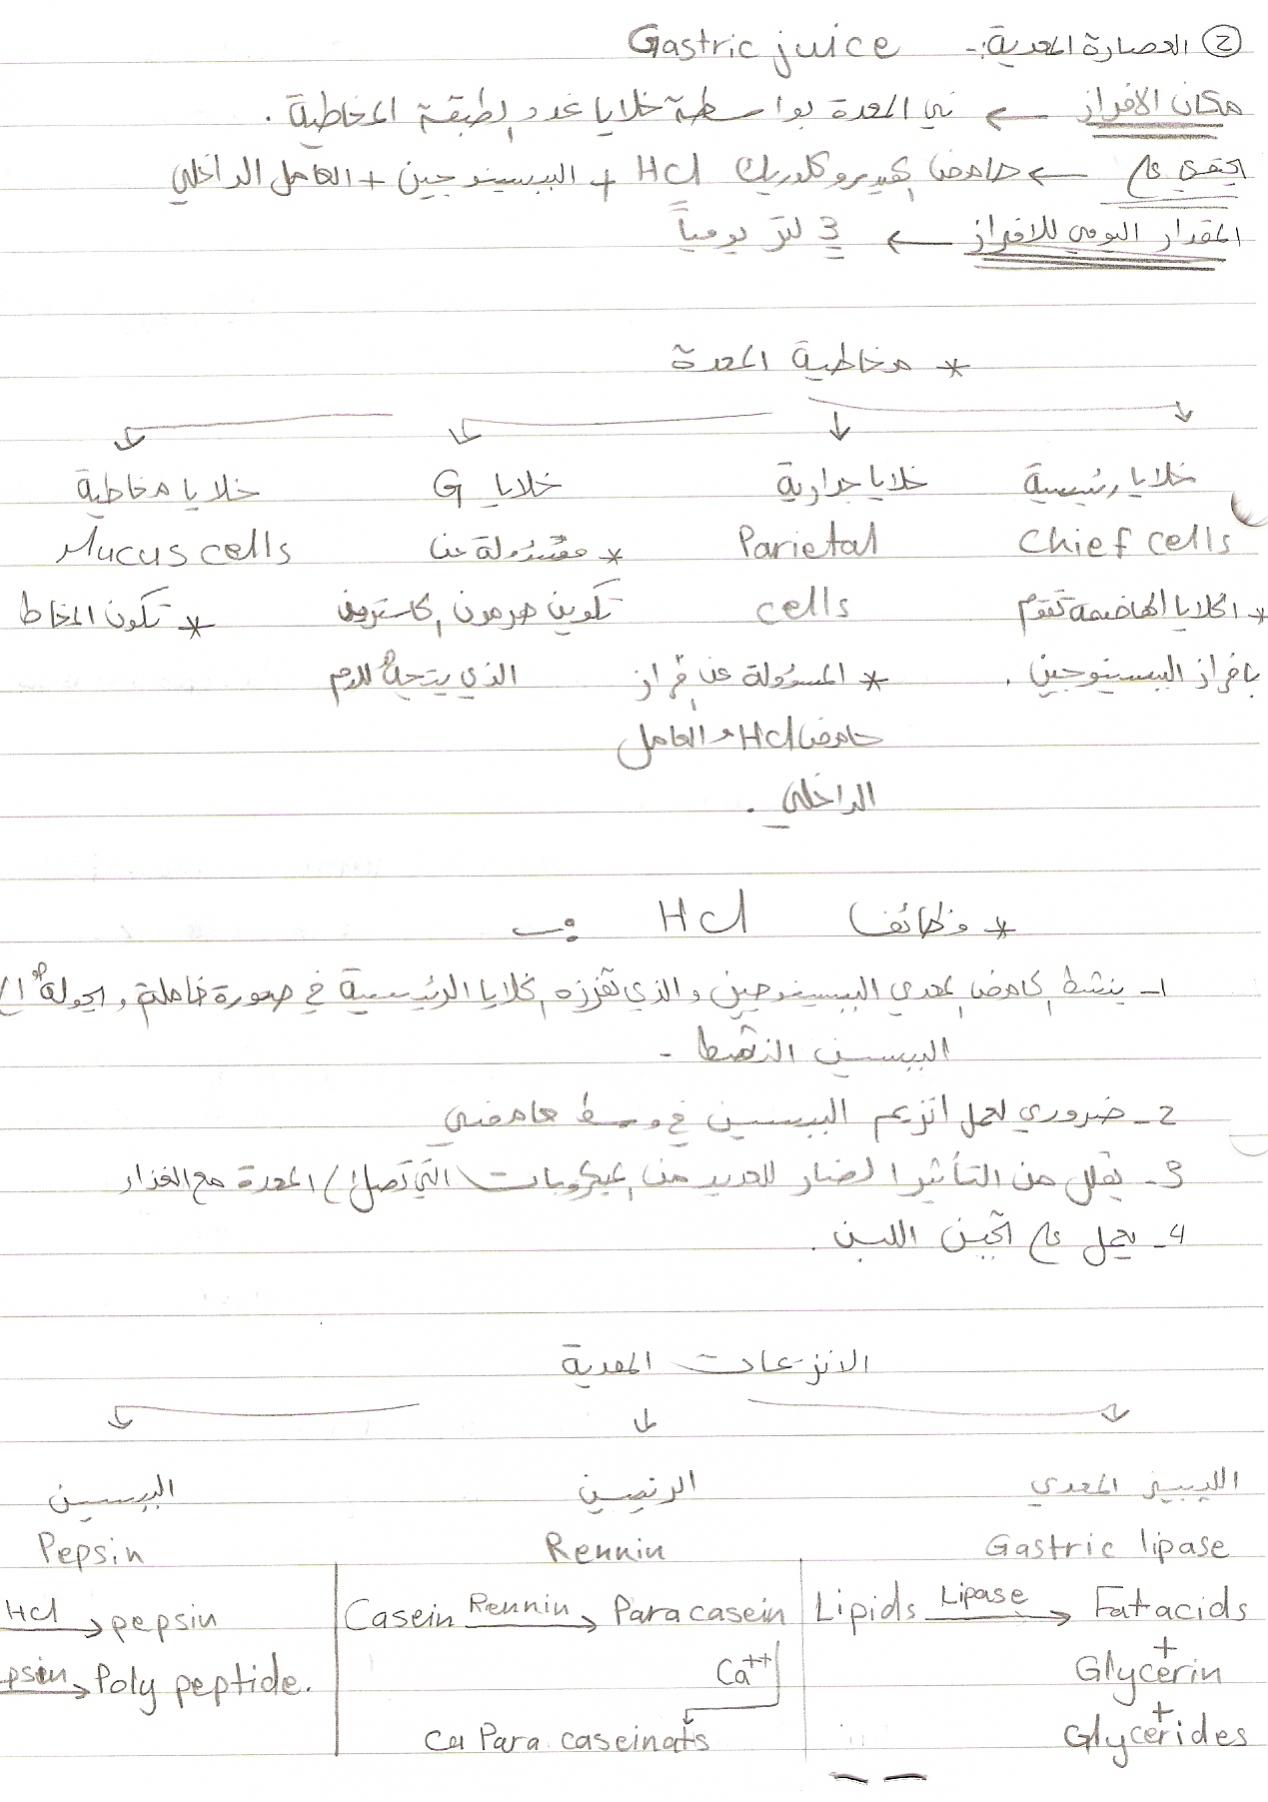 ② العصارة المعدية:- Gastric juice
مكان الافراز ← في المعدة بواسطة خلايا غدد الطبقة المخاطية .
تحتوي على ← حامض الهيدروكلوريك HCl + الببسينوجين + العامل الداخلي
المقدار اليومي للافراز ← 3 لتر يومياً
* مخاطية المعدة
خلايا رئيسية
Chief cells
* الخلايا الهاضمة تقوم
بافراز الببسينوجين .
خلايا جدارية
Parietal
cells
* المسؤولة عن افراز
حامض HCl والعامل
الداخلي .
خلايا G
* مسؤولة عن
تكوين هرمون الكاسترين
الذي يتجه للدم
خلايا مخاطية
Mucus cells
* تكون المخاط
* وظائف HCl :-
1- ينشط الحامض المعدي الببسينوجين والذي تفرزه الخلايا الرئيسية في صورة خاملة ويحوله إلى
الببسين النشط -
2- ضروري لعمل انزيم الببسين في وسط حامضي
3- يقلل من التأثير الضار للعديد من الميكروبات التي تصل إلى المعدة مع الغذاء
4- يعمل على تجبن اللبن .
الانزيمات المعدية
الليبيز المعدي
Gastric lipase
Lipids Lipase → Fat acids
+
Glycerin
+
Glycerides
الرنين
Rennin
Casein Rennin → Para casein
Ca++
Ca Para caseinats
الببسين
Pepsin
HCl → pepsin
psin → Poly peptide.